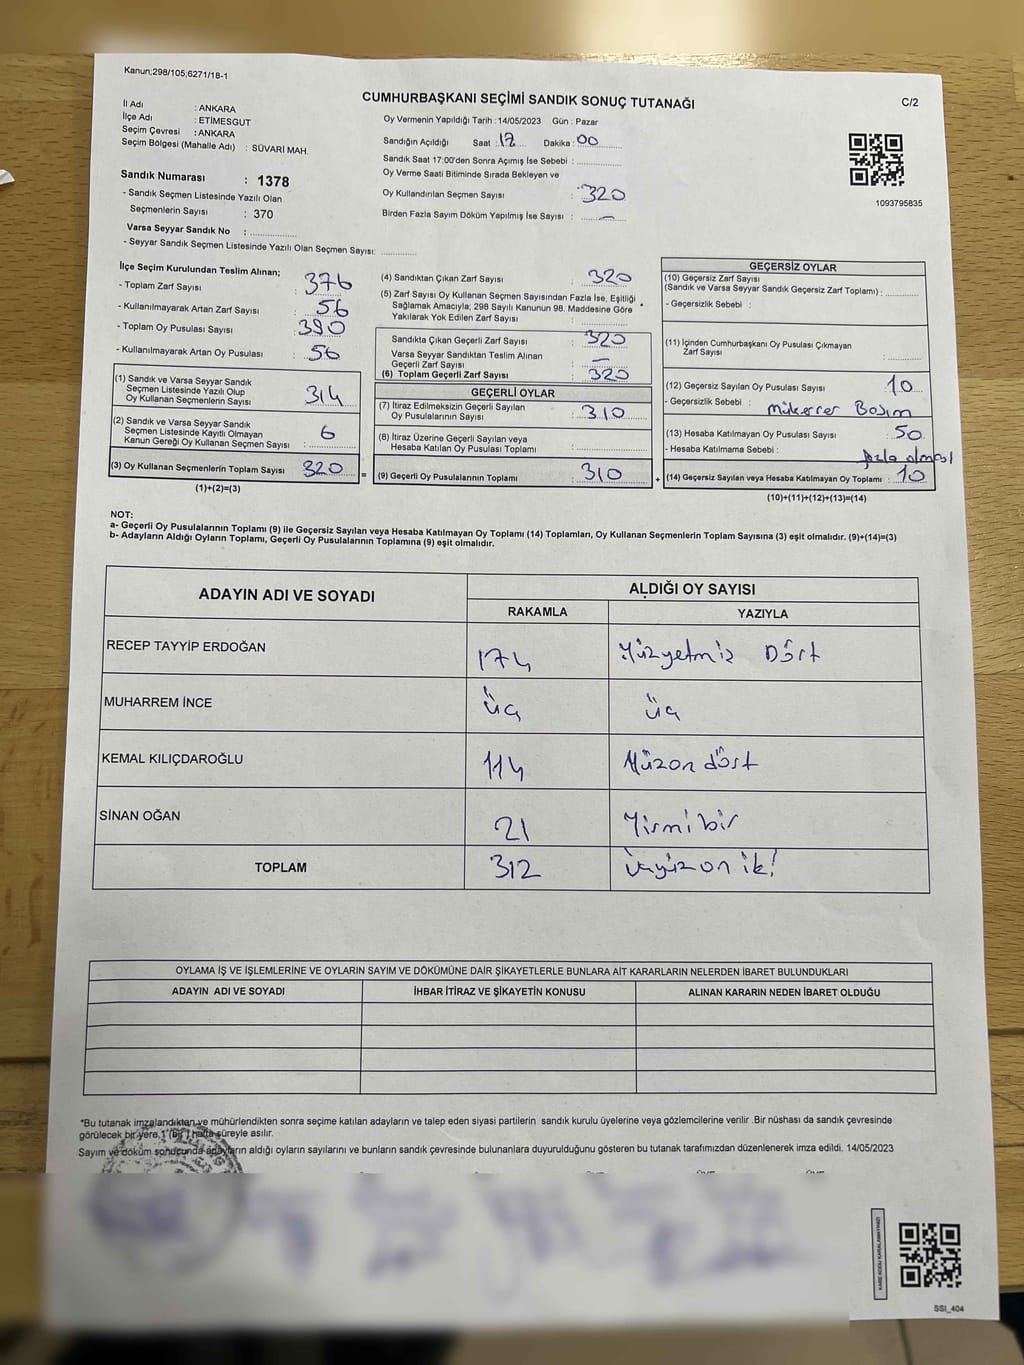 Kanun;298/105;6271/18-1
CUMHURBAŞKANI SEÇİMİ SANDIK SONUÇ TUTANAĞI
C/2
İl Adı : ANKARA
İlçe Adı : ETİMESGUT
Seçim Çevresi : ANKARA
Seçim Bölgesi (Mahalle Adı) : SÜVARİ MAH.
Sandık Numarası : 1378
- Sandık Seçmen Listesinde Yazılı Olan
Seçmenlerin Sayısı : 370
Varsa Seyyar Sandık No : ............
- Seyyar Sandık Seçmen Listesinde Yazılı Olan Seçmen Sayısı: ............
Oy Vermenin Yapıldığı Tarih : 14/05/2023 Gün : Pazar
Sandığın Açıldığı Saat : 17 Dakika : 00
Sandık Saat 17:00'den Sonra Açımış İse Sebebi : ............
Oy Verme Saati Bitiminde Sırada Bekleyen ve
Oy Kullandırılan Seçmen Sayısı : 320
Birden Fazla Sayım Döküm Yapılmış İse Sayısı : —
1093795835
İlçe Seçim Kurulundan Teslim Alınan;
- Toplam Zarf Sayısı : 376
- Kullanılmayarak Artan Zarf Sayısı : 56
- Toplam Oy Pusulası Sayısı : 390
- Kullanılmayarak Artan Oy Pusulası : 56
(1) Sandık ve Varsa Seyyar Sandık
Seçmen Listesinde Yazılı Olup
Oy Kullanan Seçmenlerin Sayısı : 314
(2) Sandık ve Varsa Seyyar Sandık
Seçmen Listesinde Kayıtlı Olmayan
Kanun Gereği Oy Kullanan Seçmen Sayısı : 6
(3) Oy Kullanan Seçmenlerin Toplam Sayısı : 320 =
(1)+(2)=(3)
(4) Sandıktan Çıkan Zarf Sayısı : 320
(5) Zarf Sayısı Oy Kullanan Seçmen Sayısından Fazla İse, Eşitliği
Sağlamak Amacıyla; 298 Sayılı Kanunun 98. Maddesine Göre
Yakılarak Yok Edilen Zarf Sayısı : ............
Sandıkta Çıkan Geçerli Zarf Sayısı : 320
Varsa Seyyar Sandıktan Teslim Alınan
Geçerli Zarf Sayısı : —
(6) Toplam Geçerli Zarf Sayısı : 320
GEÇERLİ OYLAR
(7) İtiraz Edilmeksizin Geçerli Sayılan
Oy Pusulalarının Sayısı : 310
(8) İtiraz Üzerine Geçerli Sayılan veya
Hesaba Katılan Oy Pusulası Toplamı : ............
(9) Geçerli Oy Pusulalarının Toplamı : 310 +
GEÇERSİZ OYLAR
(10) Geçersiz Zarf Sayısı
(Sandık ve Varsa Seyyar Sandık Geçersiz Zarf Toplamı) : ............
- Geçersizlik Sebebi :
(11) İçinden Cumhurbaşkanı Oy Pusulası Çıkmayan
Zarf Sayısı : ............
(12) Geçersiz Sayılan Oy Pusulası Sayısı : 10
- Geçersizlik Sebebi : Mükerrer Basım
(13) Hesaba Katılmayan Oy Pusulası Sayısı : 50
- Hesaba Katılmama Sebebi : fazla olması
(14) Geçersiz Sayılan veya Hesaba Katılmayan Oy Toplamı : 10
(10)+(11)+(12)+(13)=(14)
NOT:
a- Geçerli Oy Pusulalarının Toplamı (9) ile Geçersiz Sayılan veya Hesaba Katılmayan Oy Toplamı (14) Toplamları, Oy Kullanan Seçmenlerin Toplam Sayısına (3) eşit olmalıdır. (9)+(14)=(3)
b- Adayların Aldığı Oyların Toplamı, Geçerli Oy Pusulalarının Toplamına (9) eşit olmalıdır.
ADAYIN ADI VE SOYADI
ALDIĞI OY SAYISI
RAKAMLA YAZIYLA
RECEP TAYYİP ERDOĞAN 174 Yüzyetmiş Dört
MUHARREM İNCE üç üç
KEMAL KILIÇDAROĞLU 114 Yüzon dört
SİNAN OĞAN 21 Yirmibir
TOPLAM 312 üçyüz on iki
OYLAMA İŞ VE İŞLEMLERİNE VE OYLARIN SAYIM VE DÖKÜMÜNE DAİR ŞİKAYETLERLE BUNLARA AİT KARARLARIN NELERDEN İBARET BULUNDUKLARI
ADAYIN ADI VE SOYADI İHBAR İTİRAZ VE ŞİKAYETİN KONUSU ALINAN KARARIN NEDEN İBARET OLDUĞU
*Bu tutanak imzalandıktan ve mühürlendikten sonra seçime katılan adayların ve talep eden siyasi partilerin sandık kurulu üyelerine veya gözlemcilerine verilir. Bir nüshası da sandık çevresinde
görülecek bir yere, 1 (bir) hafta süreyle asılır.
Sayım ve döküm sonucunda adayların aldığı oyların sayılarını ve bunların sandık çevresinde bulunanlara duyurulduğunu gösteren bu tutanak tarafımızdan düzenlenerek imza edildi. 14/05/2023
KARE KODU KARALAMAYINIZ!
SSI_404